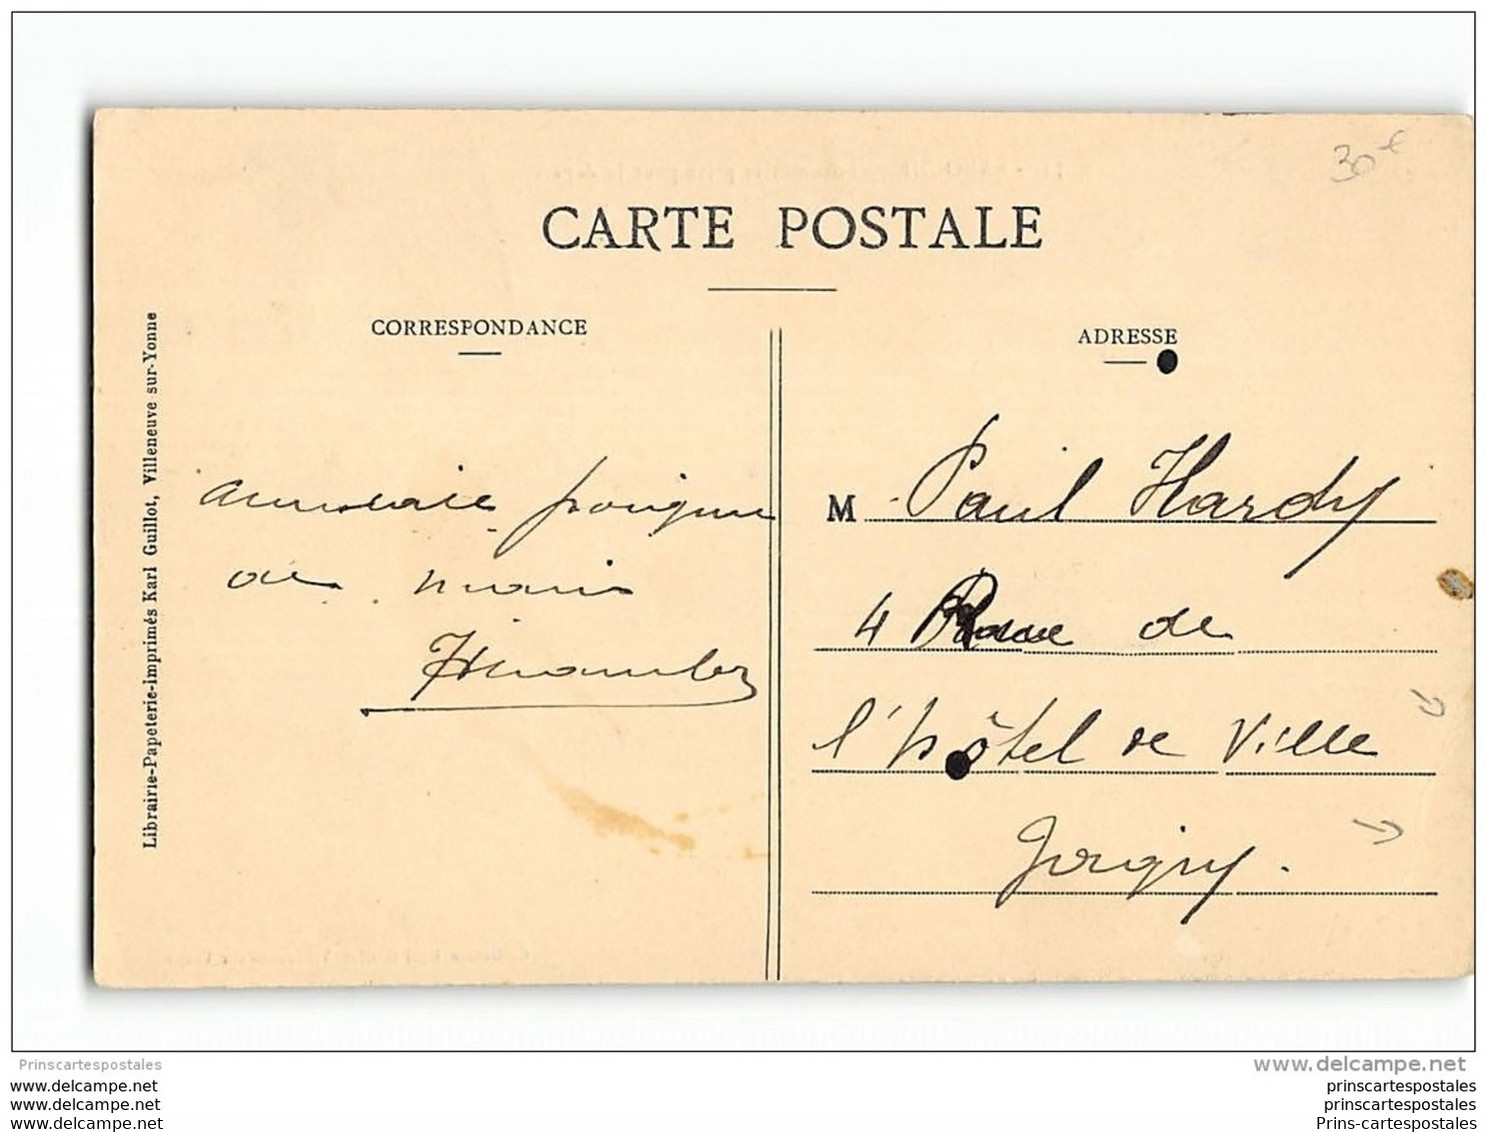 30 €
CARTE POSTALE
CORRESPONDANCE
ADRESSE
Librairie-Papeterie-imprimés Karl Guillot, Villeneuve sur-Yonne
amicale poignee
de main
M Paul Hardy
4 Rue de
l'hôtel de Ville
Joigny.
Prinscartespostales
www.delcampe.net
www.delcampe.net
www.delcampe.net
www.delcampe.net
prinscartespostales
prinscartespostales
Prins-cartespostales